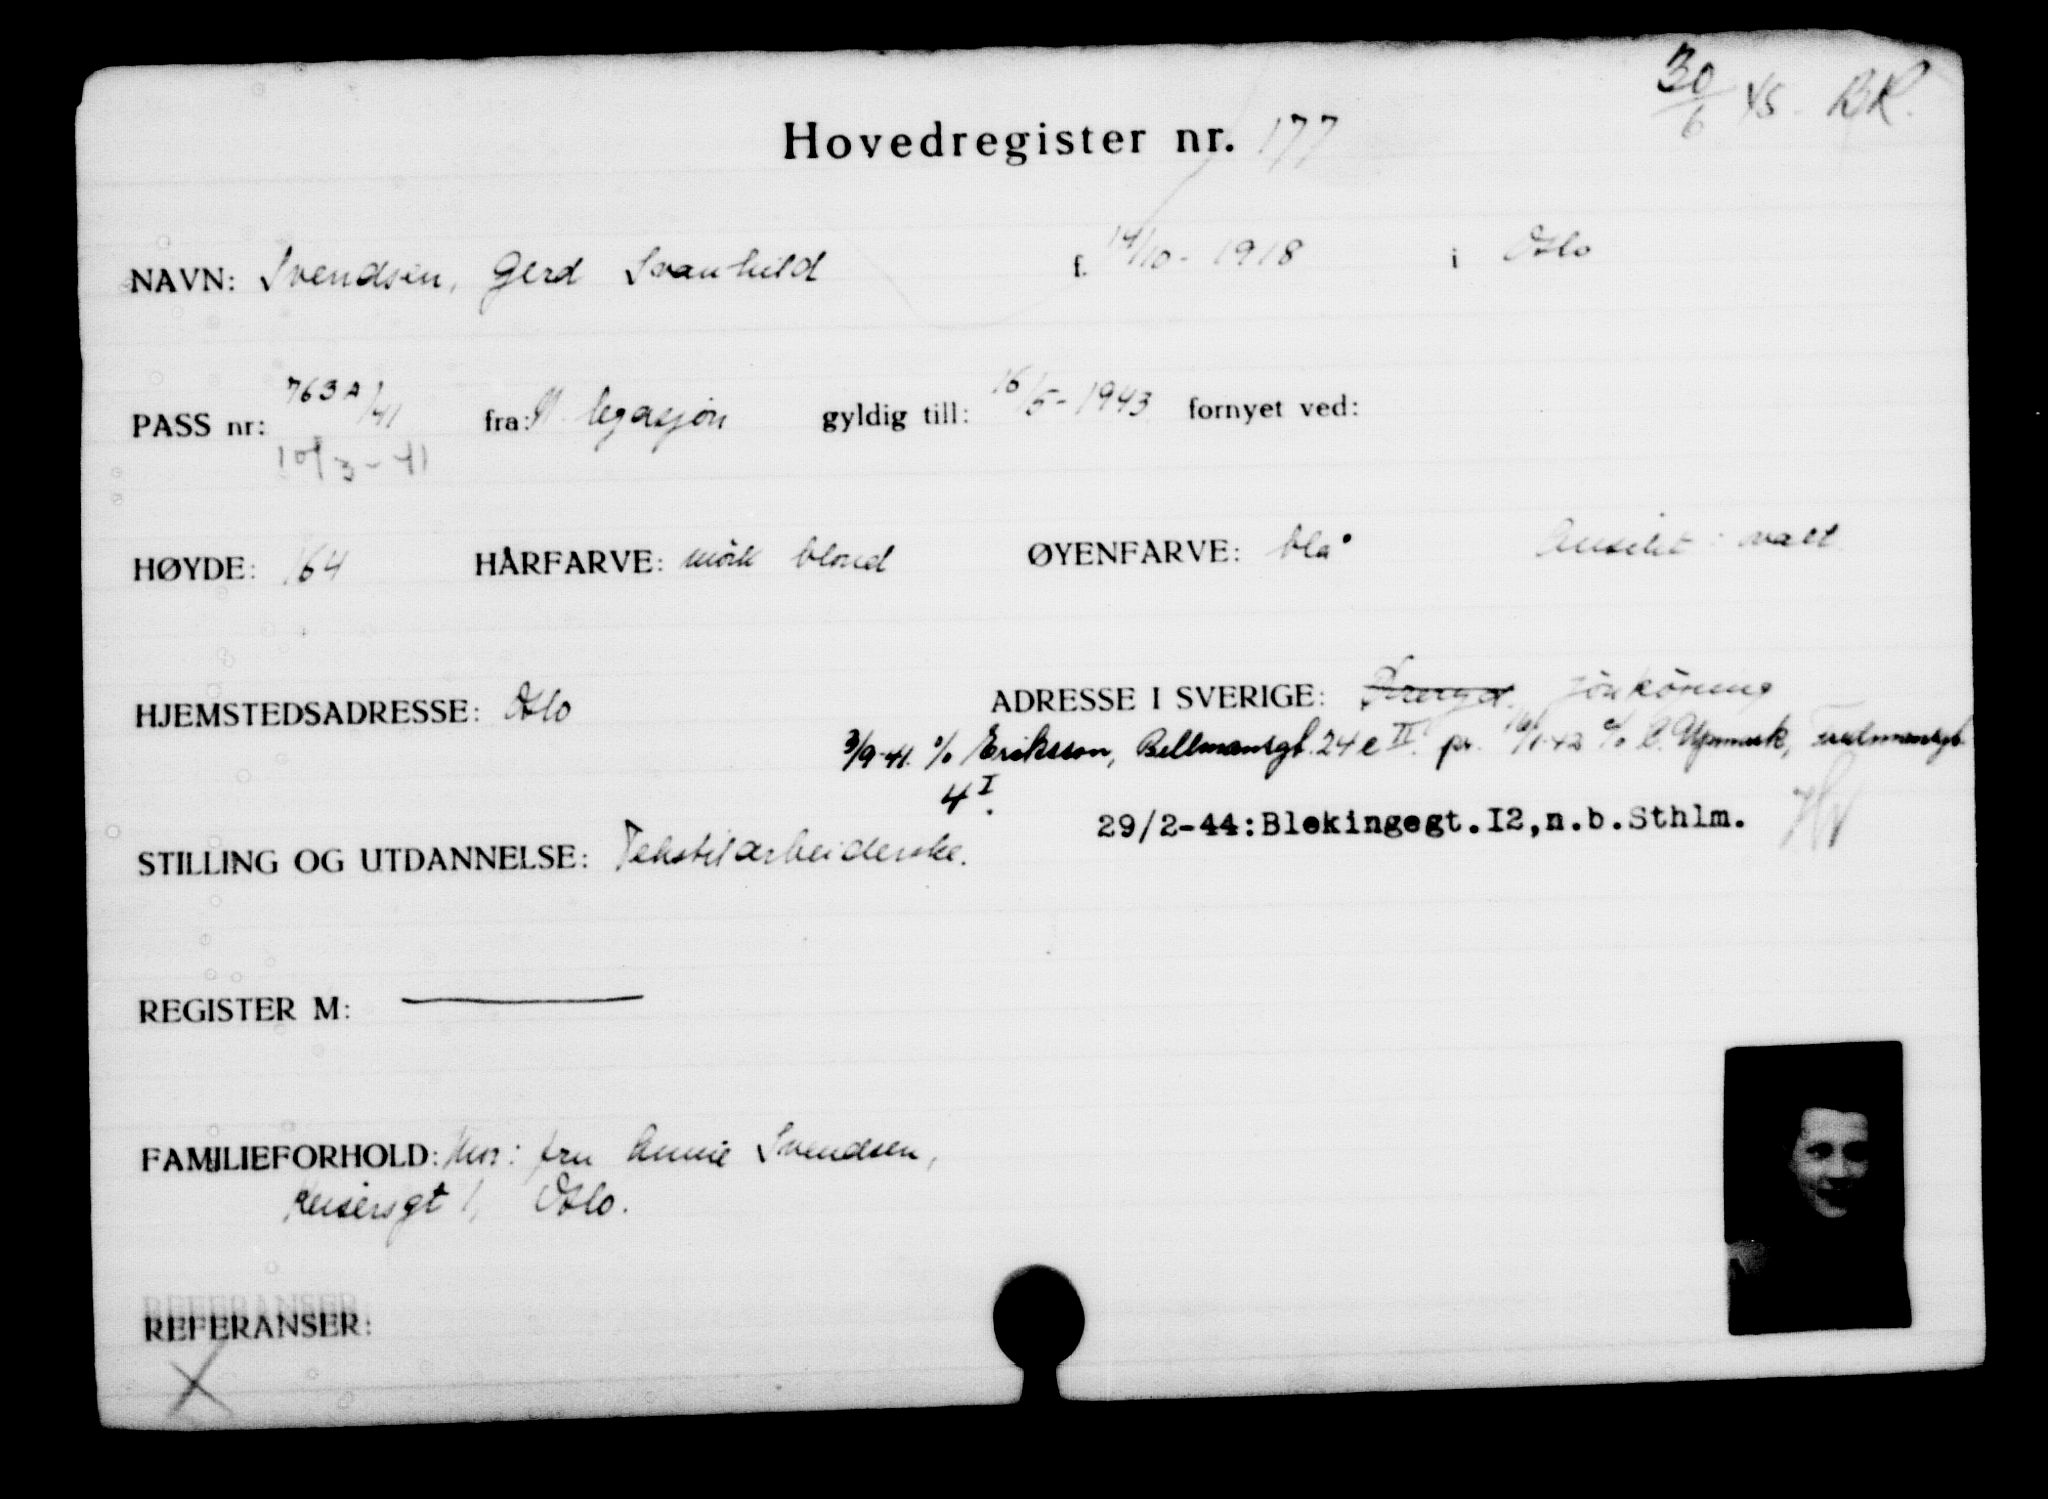 30/6 45 - BR.
Hovedregister nr. 177
NAVN: Svendsen, Gerd Svanhild f. 14/10 - 1918 i Oslo
PASS nr: 763A/41 fra: N. legasjon gyldig till: 16/5 - 1943 fornyet ved:
10/3 - 41
HØYDE: 164 HÅRFARVE: mörk blond ØYENFARVE: blå Ansikt: ovalt
HJEMSTEDSADRESSE: Oslo ADRESSE I SVERIGE: Jönköping
3/9-41. c/o Eriksson, Bellmansgt. 24 c II. pr. 16/1-42 c/o Uppmark, Fredmansgt.
4 I.
29/2-44:Blekingegt.I2,n.b.Sthlm.
STILLING OG UTDANNELSE: Tekstilarbeiderske.
REGISTER M: —
FAMILIEFORHOLD: Mor: fru Annie Svendsen,
Keisersgt 1, Oslo.
REFERANSER:
X